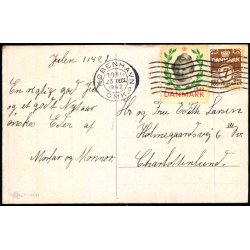 Julen 1942
En rigtig god Jul
og et godt Nytaar
ønskes Eder af
Morfar og Mormor
KØBENHAVN
23 DEC.
1942
OMK.
DANMARK
7
Hr og Frue Edith Larsen
Holmegaardsvej 6
Charlottenlund